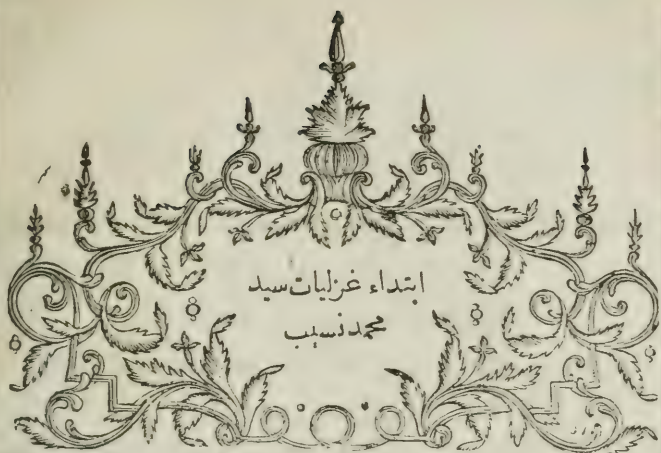 ابتداء غزليات سيد
محمد نسيب